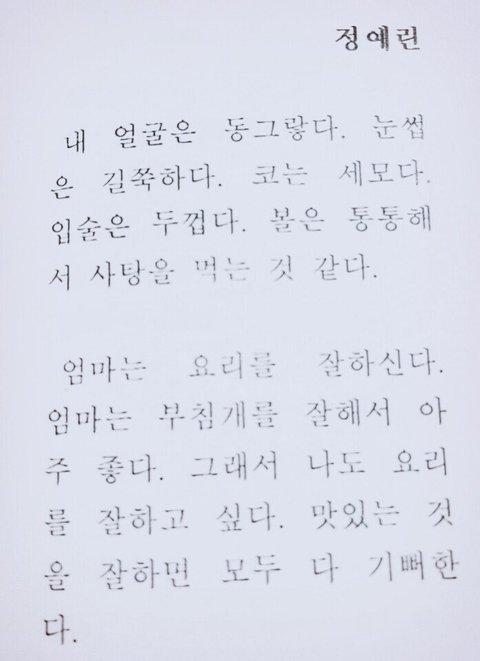 정예린
내 얼굴은 동그랗다. 눈썹
은 길쭉하다. 코는 세모다.
입술은 두껍다. 볼은 통통해
서 사탕을 먹는 것 같다.
엄마는 요리를 잘하신다.
엄마는 부침개를 잘해서 아
주 좋다. 그래서 나도 요리
를 잘하고 싶다. 맛있는 것
을 잘하면 모두 다 기뻐한
다.